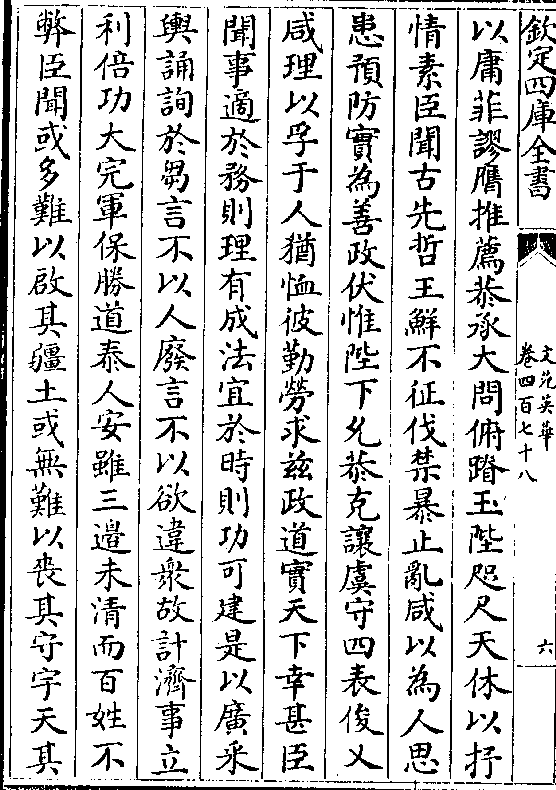 欽定四庫全書
文苑英華
卷四百七十八
六
以庸菲謬膺推薦恭承大問俯蹐玉陛咫尺天休以抒
情素臣聞古先哲王鮮不征伐禁暴止亂咸以為人思
患預防實為善政伏惟陛下允恭克讓虞守四表俊乂
咸理以孚于人猶恤彼勤勞求兹政道實天下幸甚臣
聞事適於務則理有成法宜於時則功可建是以廣采
輿誦詢於芻言不以人廢言不以欲違衆故計濟事立
利倍功大完軍保勝道泰人安雖三邉未清而百姓不
弊臣聞或多難以啟其疆土或無難以喪其守宇天其